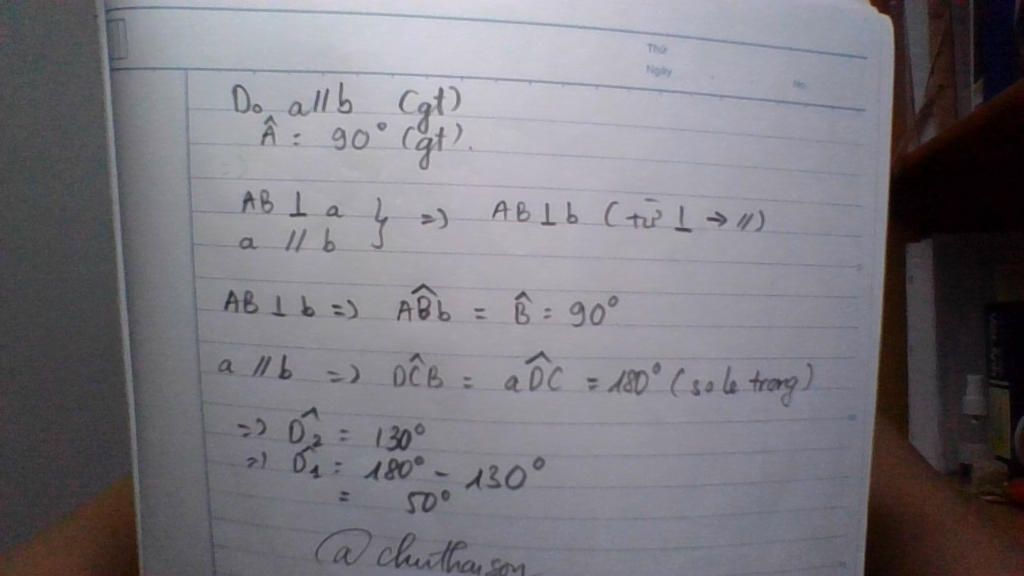 Thứ
Ngày
No.
Do a // b (gt)
Â = 90° (gt).
AB ⊥ a } =) AB ⊥ b (từ ⊥ → //)
a // b
AB ⊥ b =) ABb̂ = B̂ = 90°
a // b =) DĈB = aD̂C = 180° (so le trong)
=) D̂₂ = 130°
=) D̂₁ = 180° - 130°
= 50°
@chuthaison